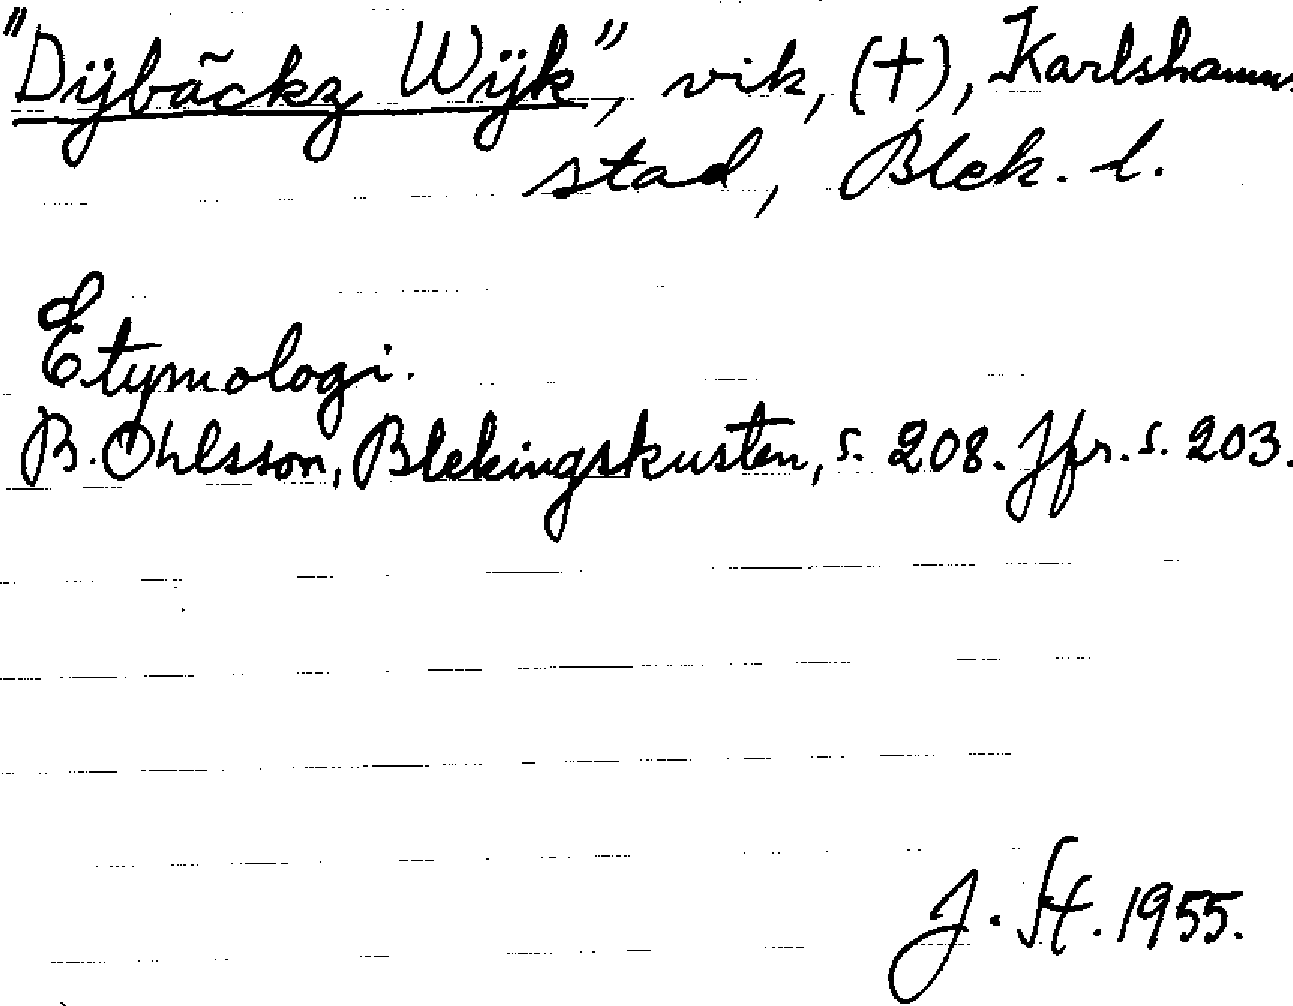 "Dÿbãckz Wÿk", vik, (+), Karlshamns
stad, Blek. l.
Etymologi.
B. Ohlsson, Blekingskusten, s. 208. Jfr. s. 203.
J. St. 1955.